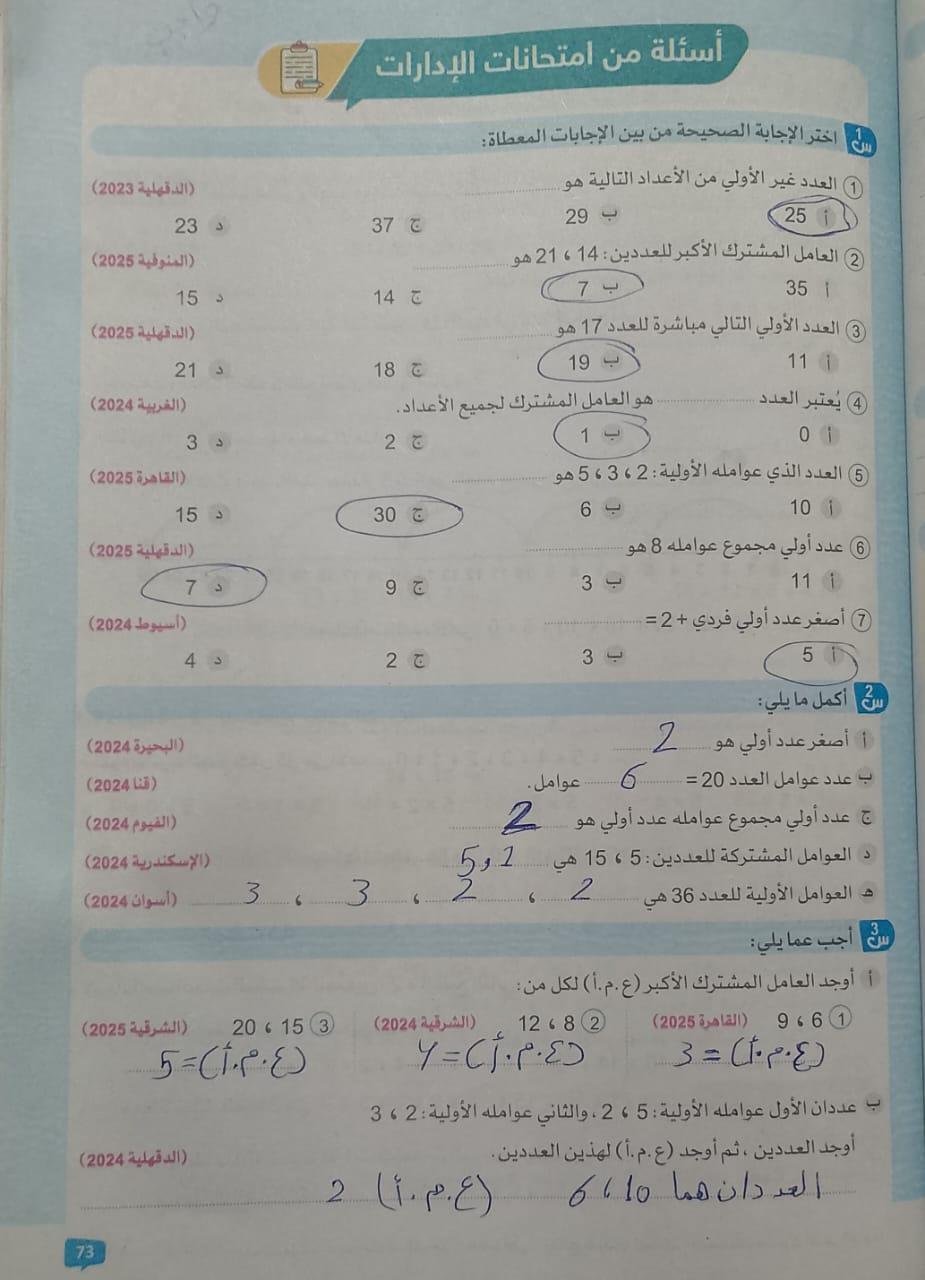 واجب
أسئلة من امتحانات الإدارات
س1 اختر الإجابة الصحيحة من بين الإجابات المعطاة:
1 العدد غير الأولي من الأعداد التالية هو ............ (الدقهلية 2023)
أ 25 ب 29 ج 37 د 23
2 العامل المشترك الأكبر للعددين: 14 ، 21 هو ............ (المنوفية 2025)
أ 35 ب 7 ج 14 د 15
3 العدد الأولي التالي مباشرة للعدد 17 هو ............ (الدقهلية 2025)
أ 11 ب 19 ج 18 د 21
4 يُعتبر العدد ............ هو العامل المشترك لجميع الأعداد. (الغربية 2024)
أ 0 ب 1 ج 2 د 3
5 العدد الذي عوامله الأولية: 2 ، 3 ، 5 هو ............ (القاهرة 2025)
أ 10 ب 6 ج 30 د 15
6 عدد أولي مجموع عوامله 8 هو ............ (الدقهلية 2025)
أ 11 ب 3 ج 9 د 7
7 أصغر عدد أولي فردي + 2 = ............ (أسيوط 2024)
أ 5 ب 3 ج 2 د 4
س2 أكمل ما يلي:
أ أصغر عدد أولي هو 2 (البحيرة 2024)
ب عدد عوامل العدد 20 = 6 عوامل. (قنا 2024)
ج عدد أولي مجموع عوامله عدد أولي هو 2 (الفيوم 2024)
د العوامل المشتركة للعددين: 5 ، 15 هي 1 و 5 (الإسكندرية 2024)
هـ العوامل الأولية للعدد 36 هي 2 ، 2 ، 3 ، 3 (أسوان 2024)
س3 أجب عما يلي:
أ أوجد العامل المشترك الأكبر (ع.م.أ) لكل من:
1 6 ، 9 (القاهرة 2025) 2 8 ، 12 (الشرقية 2024) 3 15 ، 20 (الشرقية 2025)
(ع.م.أ) = 3 (ع.م.أ) = 4 (ع.م.أ) = 5
ب عددان الأول عوامله الأولية: 5 ، 2 ، والثاني عوامله الأولية: 2 ، 3
أوجد العددين ، ثم أوجد (ع.م.أ) لهذين العددين. (الدقهلية 2024)
العددان هما 10 ، 6 (ع.م.أ) 2
73